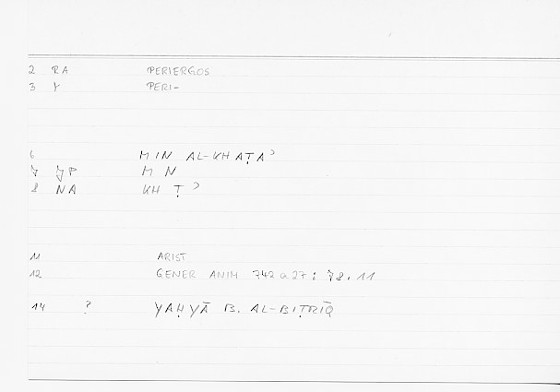 2 RA PERIERGOS
3 γ PERI-
6 MIN AL-KHAṬAʾ
7 JP M N
8 NA KH Ṭ ʾ
11 ARIST
12 GENER ANIM 742 a 27 : 78.11
14 ? YAḤYĀ B. AL-BIṬRĪQ